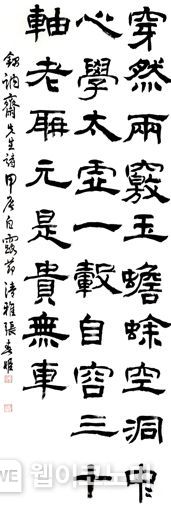 穿然兩竅玉蟾蜍空洞中
心學太虛一轂自容三十
軸老聃元是貴無車
齋先生詩甲辰白露節清雅張春姬
웹이코노미